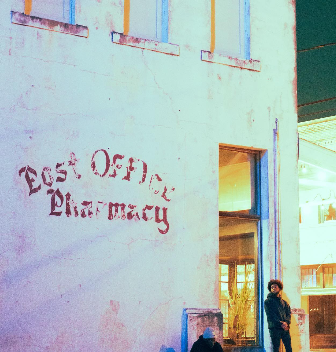 Post Office
Pharmacy